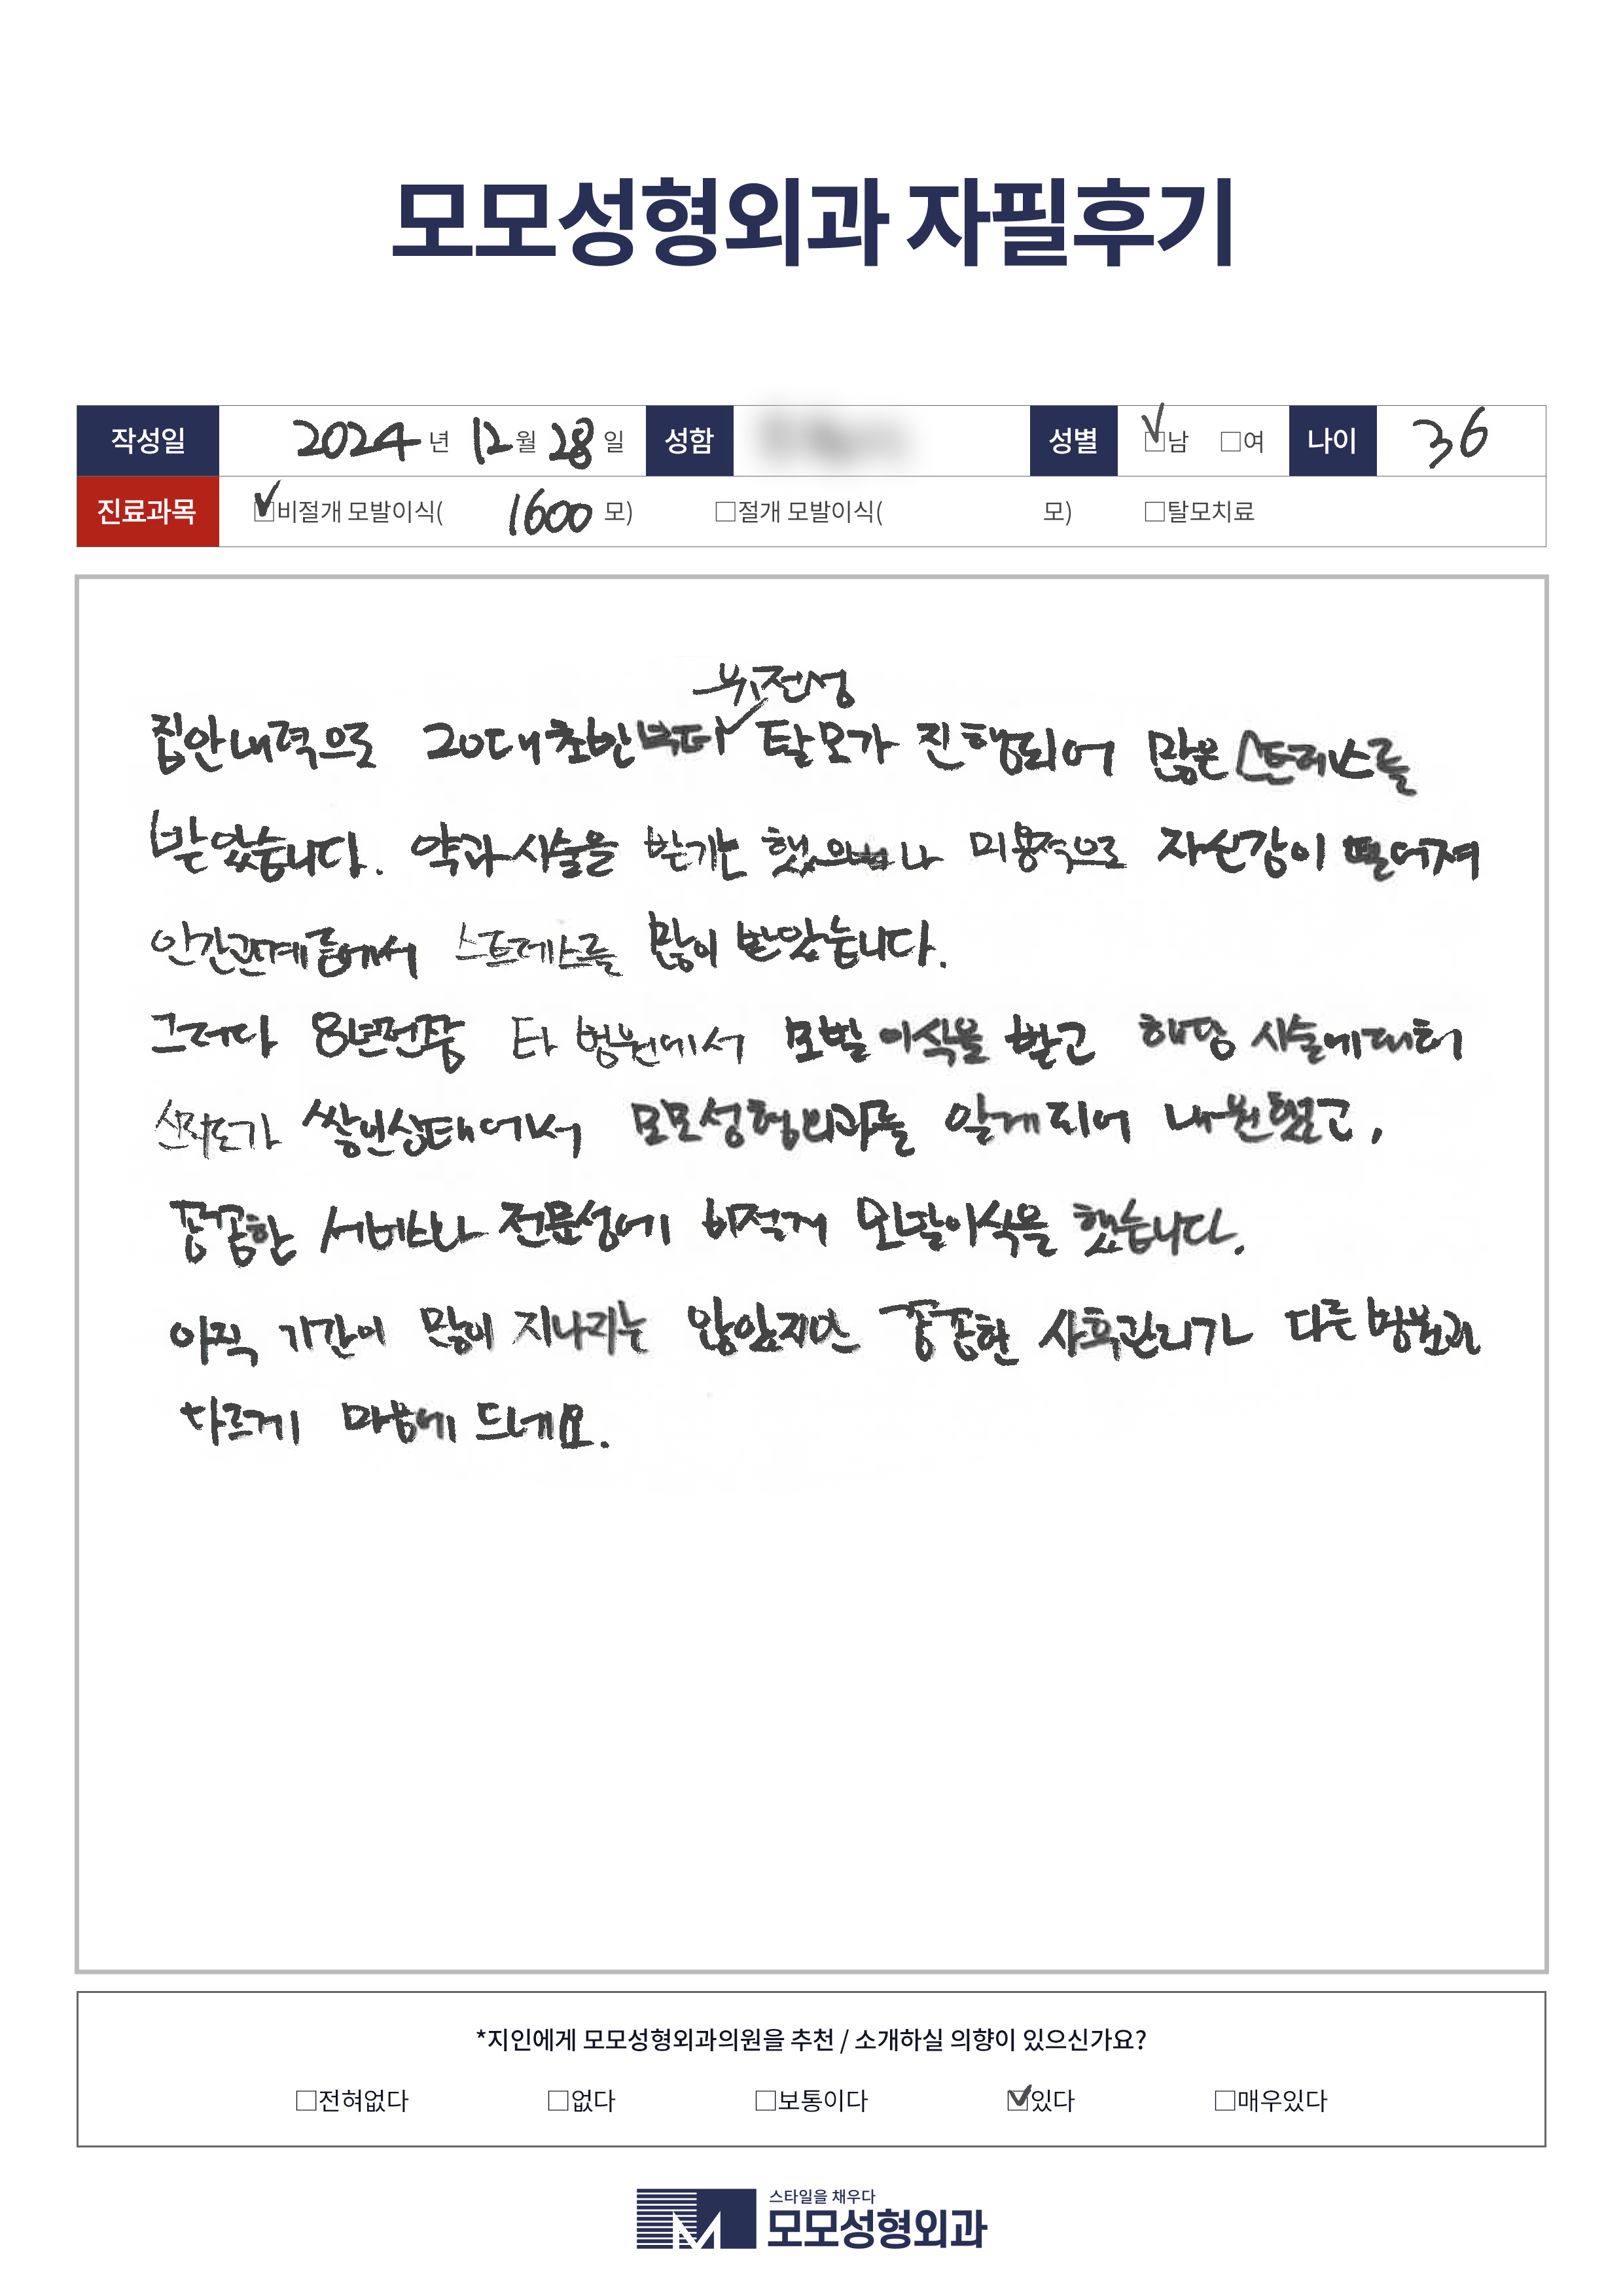 모모성형외과 자필후기
작성일 2024 년 12 월 28 일 성함 성별 ☑남 □여 나이 36
진료과목 ☑비절개 모발이식( 1600 모) □절개 모발이식( 모) □탈모치료
유전성
집안내력으로 20대초반부터 탈모가 진행되어 많은 스트레스를
받았습니다. 약과 시술을 받기는 했으나 미용적으로 자신감이 떨어져
인간관계등에서 스트레스를 많이 받았습니다.
그러다 8년전쯤 타 병원에서 모발이식을 받고 해당 시술에대해
신뢰도가 쌓인상태에서 모모성형외과를 알게되어 내원했고,
꼼꼼한 서비스와 전문성에 모발이식을 했습니다.
아직 기간이 많이 지나지는 않았지만 꼼꼼한 사후관리가 다른병원과
다르게 마음에 드네요.
*지인에게 모모성형외과의원을 추천 / 소개하실 의향이 있으신가요?
□전혀없다 □없다 □보통이다 ☑있다 □매우있다
스타일을 채우다
모모성형외과